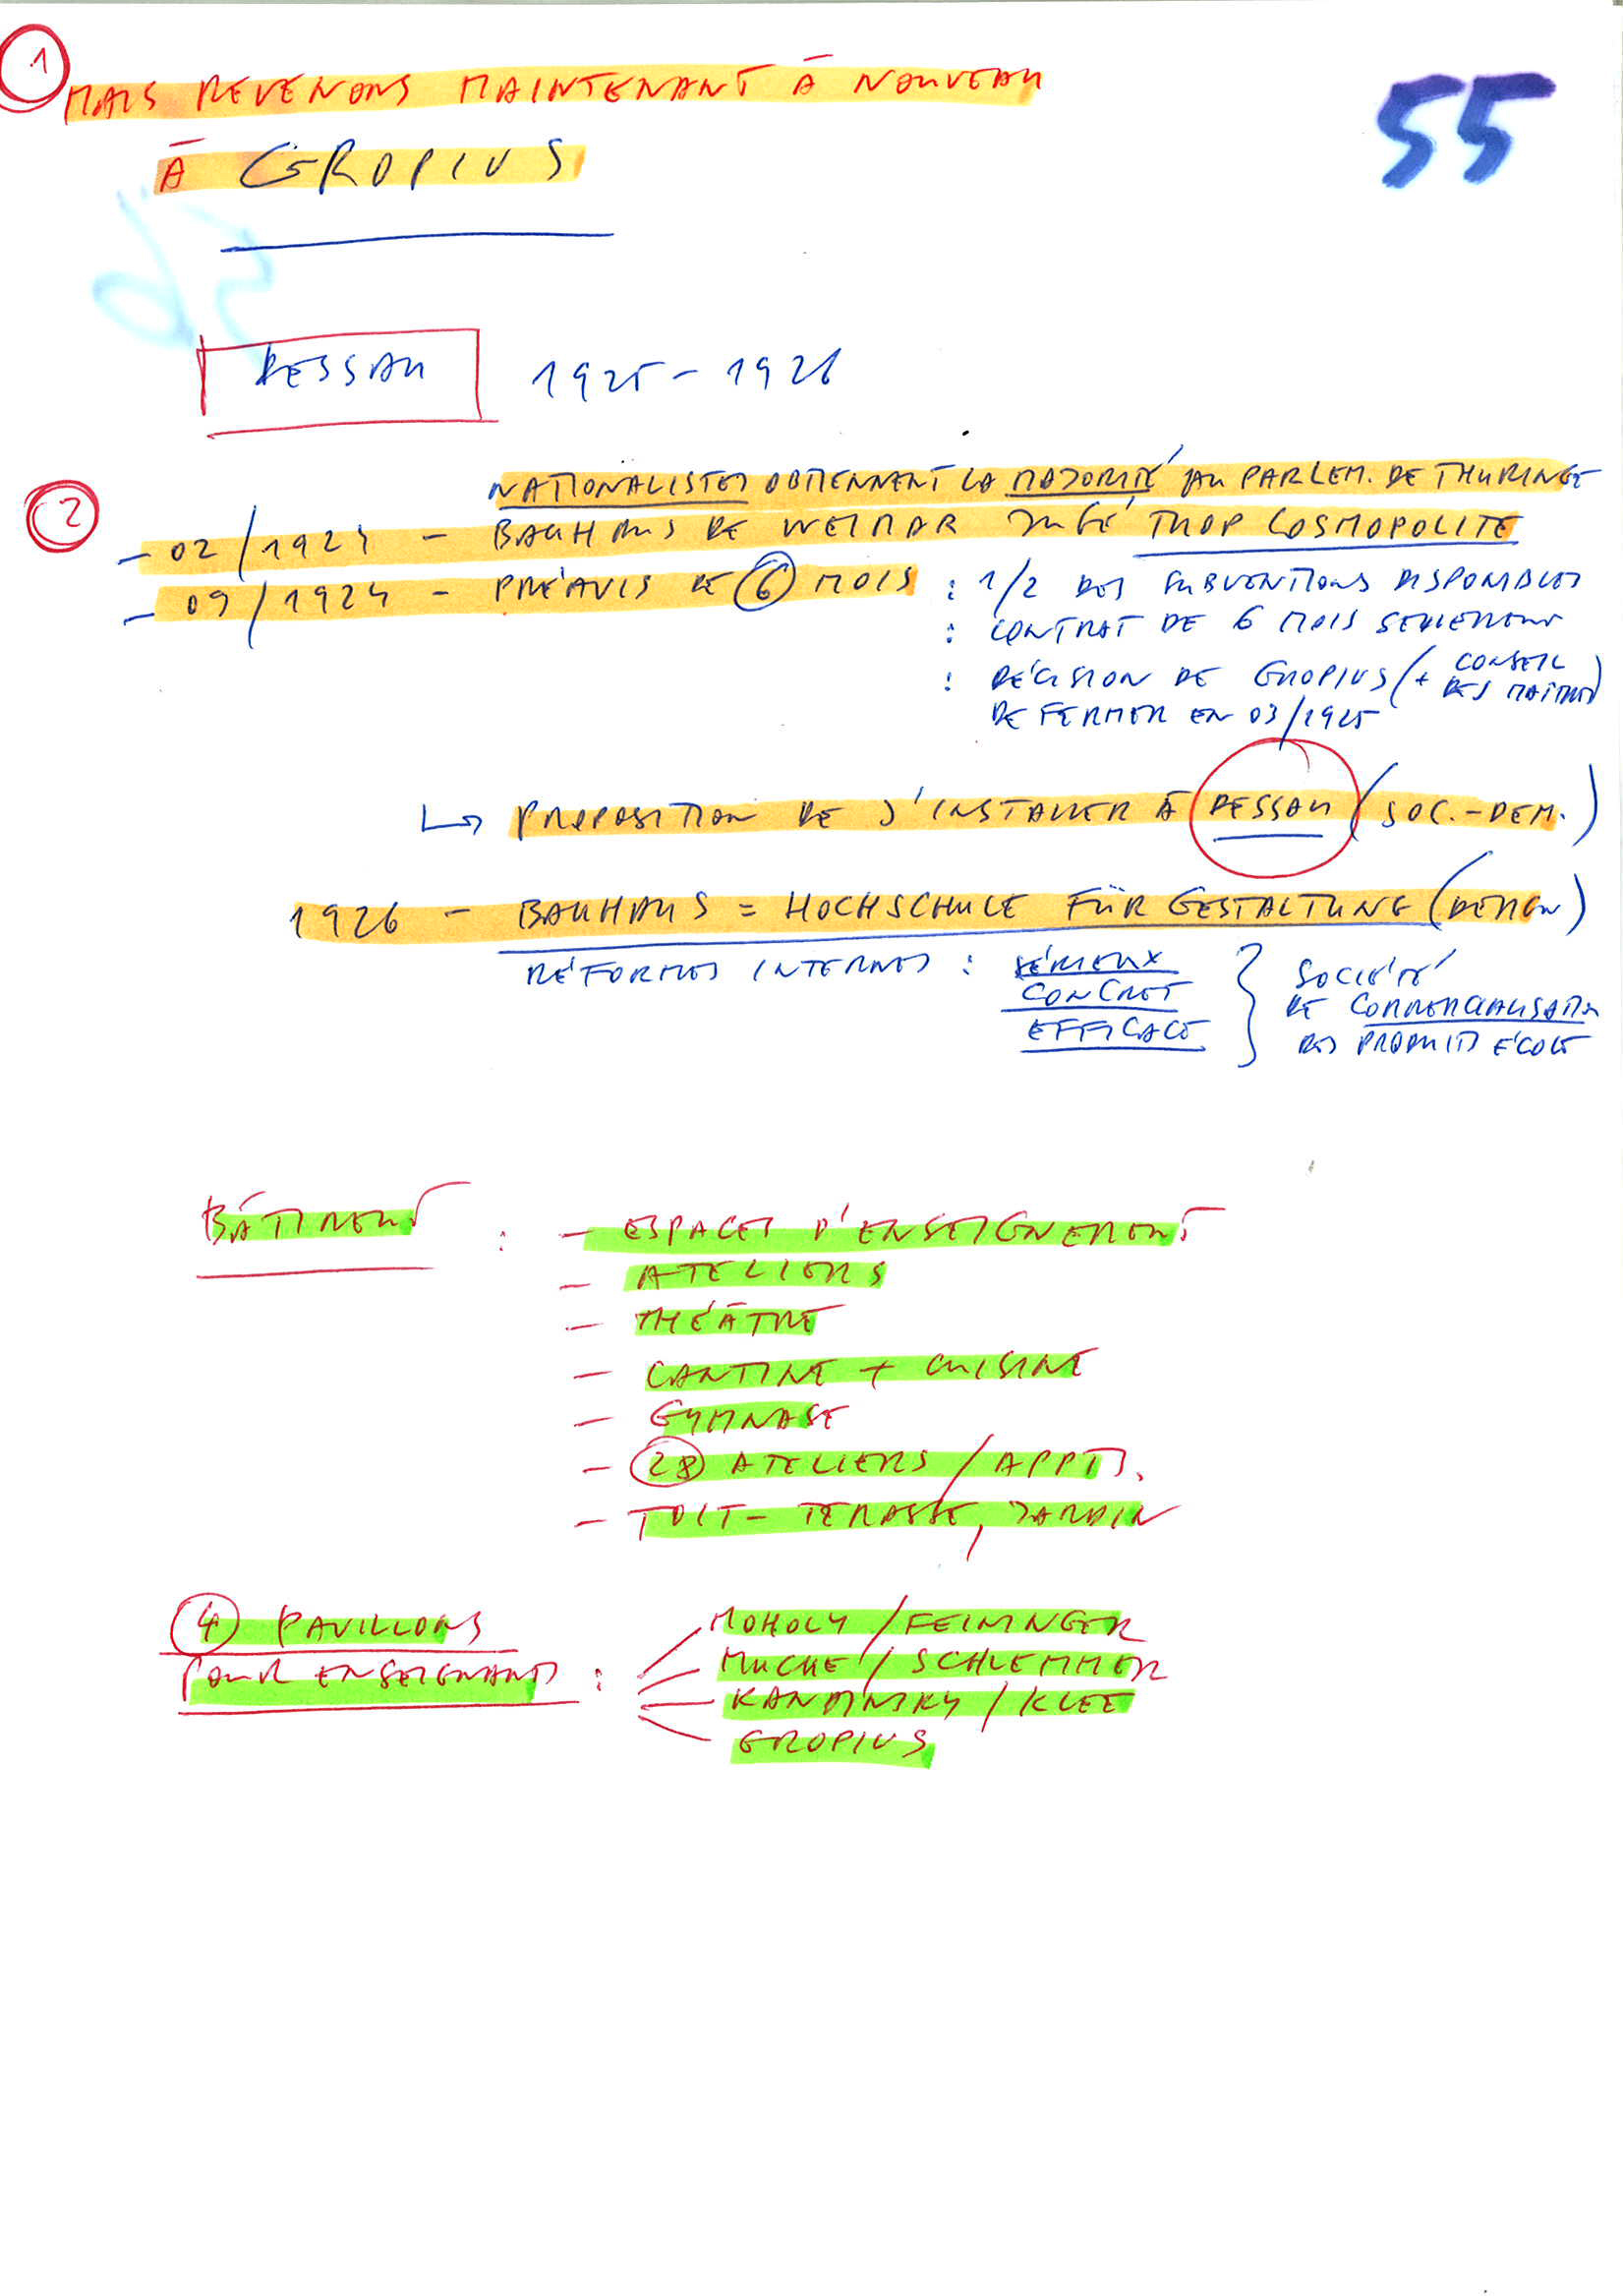 1
MAIS REVENONS MAINTENANT À NOUVEAU
55
À GROPIUS
DESSAU 1925-1926
2
NATIONALISTES OBTIENNENT LA MAJORITÉ AU PARLEM. DE THURINGE
- 02/1924 - BAUHAUS DE WEIMAR JUGÉ TROP COSMOPOLITE
- 09/1924 - PRÉAVIS DE 6 MOIS : 1/2 DES SUBVENTIONS DISPONIBLES
: CONTRAT DE 6 MOIS SEULEMENT
: DÉCISION DE GROPIUS (+ CONSEIL DES MAÎTRES)
DE FERMER EN 03/1925
↳ PROPOSITION DE S'INSTALLER À DESSAU (SOC.-DEM.)
1926 - BAUHAUS = HOCHSCHULE FÜR GESTALTUNG (DESIGN)
RÉFORMES INTERNES : SÉRIEUX } SOCIÉTÉ
CONCRET DE COMMERCIALISATION
EFFICACE DES PRODUITS ÉCOLE
BÂTIMENT : - ESPACES D'ENSEIGNEMENT
- ATELIERS
- THÉÂTRE
- CANTINE + CUISINE
- GYMNASE
- 28 ATELIERS / APPTS.
- TOIT-TERASSE, JARDIN
4 PAVILLONS
POUR ENSEIGNANTS :
MOHOLY / FEININGER
MUCHE / SCHLEMMER
KANDINSKY / KLEE
GROPIUS